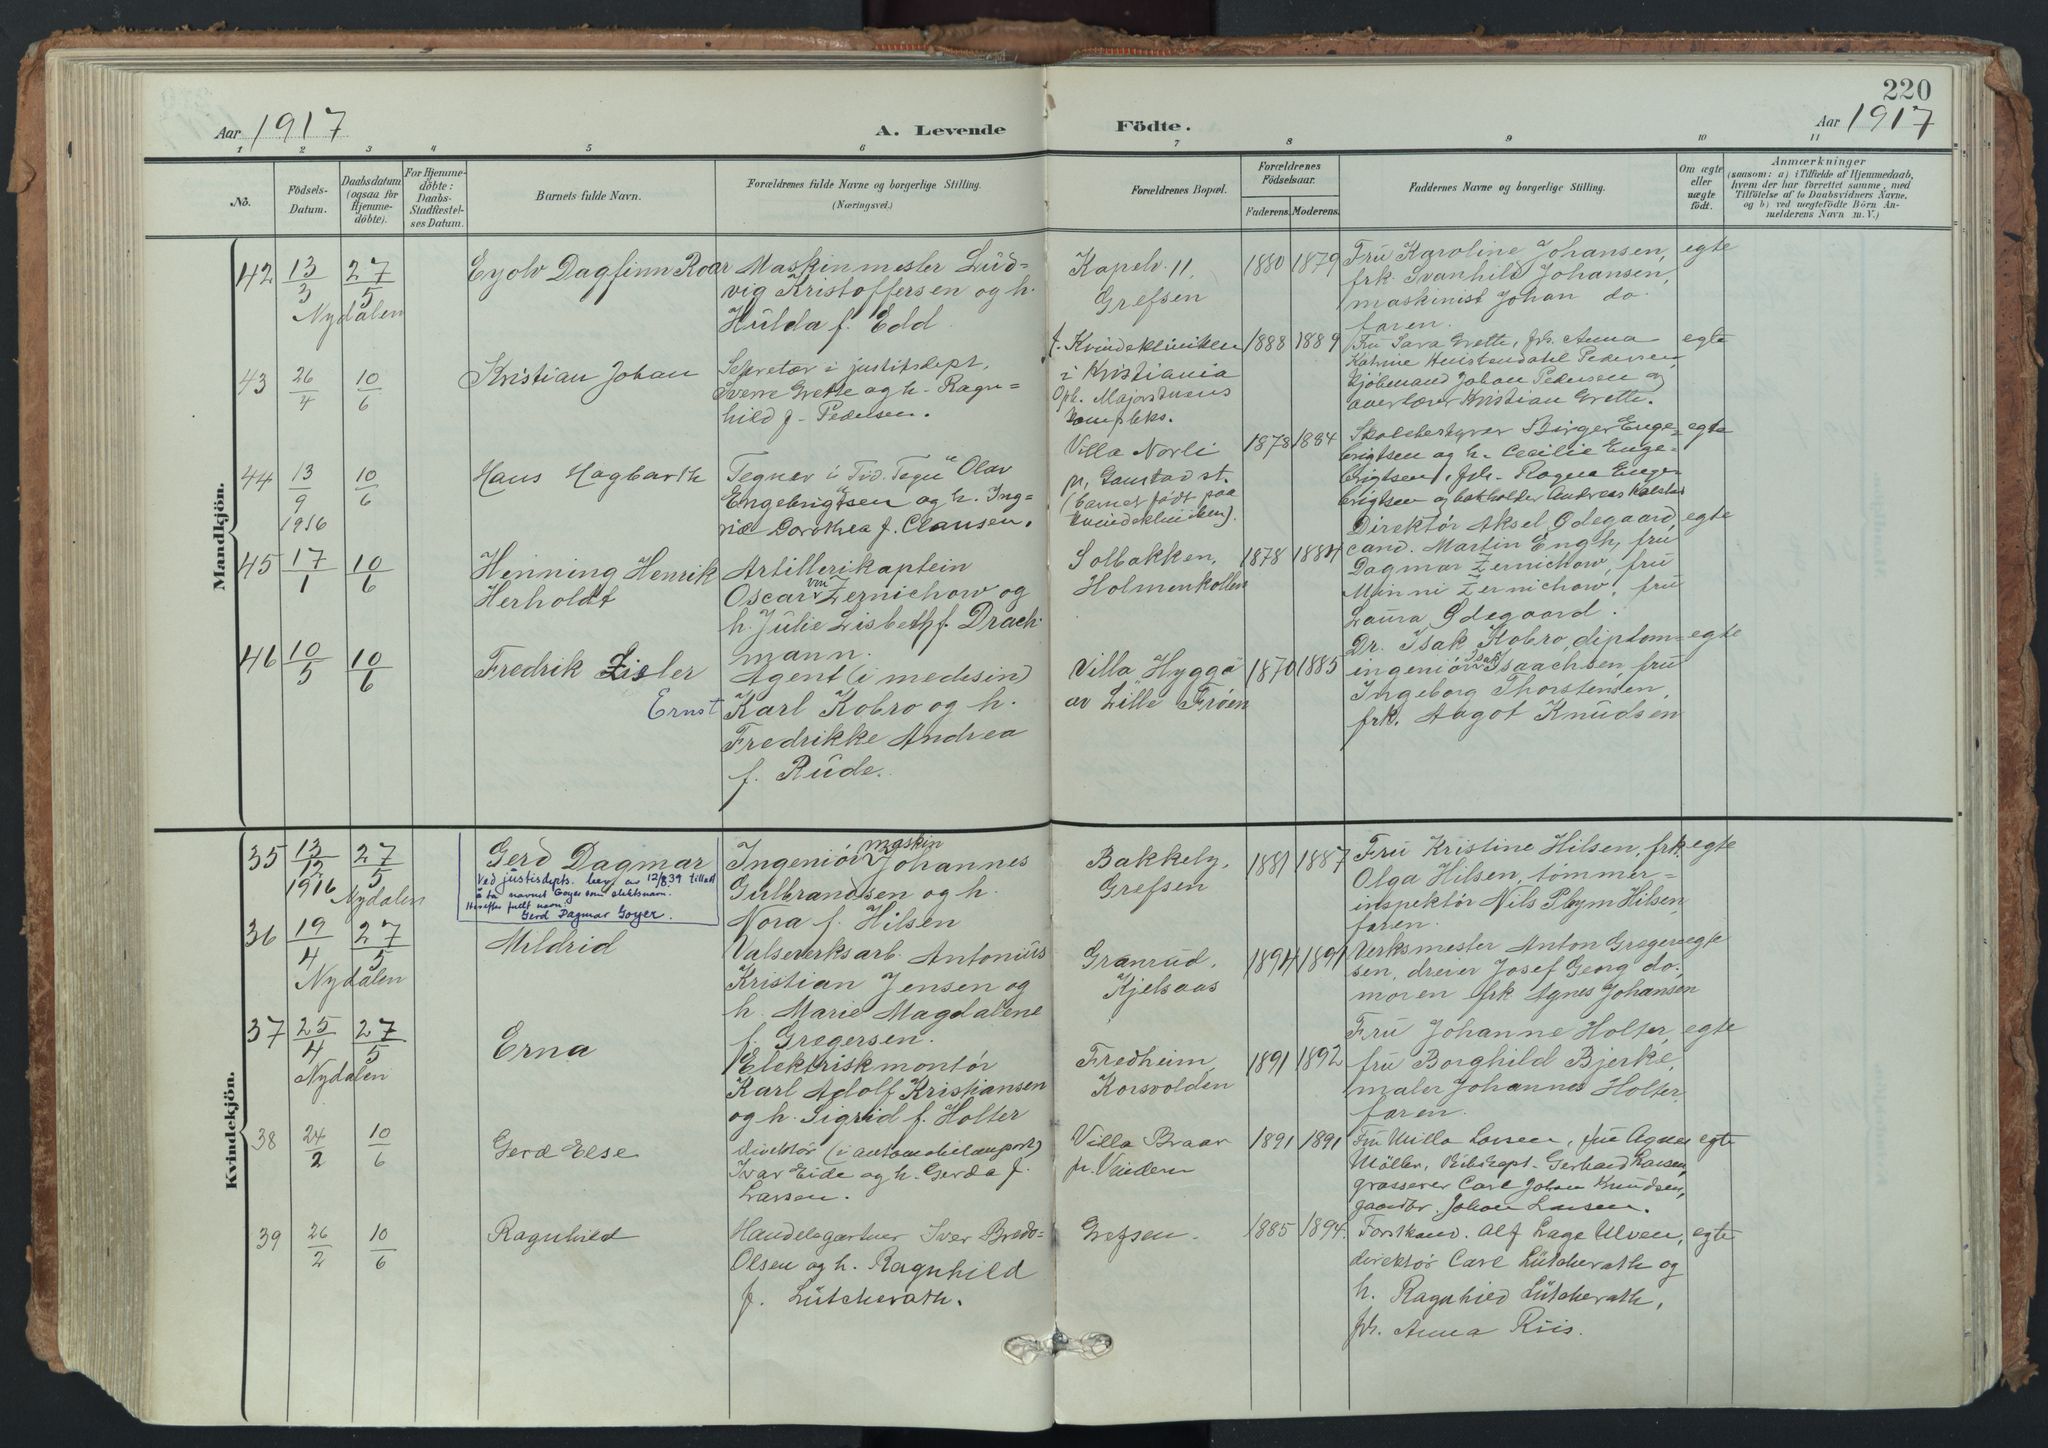 220
Aar 1917
A. Levende
Födte.
Aar 1917
1 2 3 4 5 6 7 8 9 10 11
No.
Födsels-
Datum.
Daabsdatum
(ogsaa for
Hjemme-
döbte).
For Hjemme-
döbte:
Daabs-
Stadfæstel-
ses Datum.
Barnets fulde Navn.
Forældrenes fulde Navne og borgerlige Stilling.
(Næringsvei.)
Forældrenes Bopæl.
Forældrenes
Födselsaar.
Faderens. Moderens.
Faddernes Navne og borgerlige Stilling.
Om ægte
eller
uægte
födt.
Anmærkninger
(saasom: a) i Tilfælde af Hjemmedaab,
hvem der har forrettet samme, med
Tilföielse af to Daabsvidners Navne,
og b) ved uægtefödte Börn An-
melderens Navn m. V.)
Mandkjön.
42
13/3
27/5
Nydalen
Eyolv Dagfinn Roar
Maskinmester Lud-
vig Kristoffersen og h.
Hulda f. Edd.
Kapelv. 11.
Grefsen
1880 1879
Fru Karoline Johansen,
frk. Svanhild Johansen,
maskinist Johan do.
faren.
egte
43
26/4
10/6
Kristian Johan
Sekretær i justitsdept.
Sverre Grette og h. Ragn-
hild f. Pedersen.
f. Kvindeklinikken
i Kristiania
Oph. Majorstuens
kompleks.
1888 1889
Fru Sara Grette, frk. Anna
Katrine Pedersen,
kjøbmand Johan Pedersen og
overlærer Kristian Grette.
egte
44
13/9
1916
10/6
Hans Hagbarth
Tegner i "Tid. Tegn" Olav
Engebrigtsen og h. Ing-
rid Dorothea f. Clausen.
Villa Norli
pr. Gaustad st.
(barnet født paa
kvindeklinikken).
1878 1884
Skolebestyrer Birger Enge-
brigtsen og h. Cecilie Enge-
brigtsen, frk. Ragna Enge-
brigtsen og bokholder Andreas Kalstad
egte
45
17/1
10/6
Henning Henrik
Herholdt
Artillerikaptein
Oscar von Zernichow og
h. Julie Lisbeth f. Drach-
mann.
Solbakken,
Holmenkollen
1878 1884
Direktør Aksel Ødegaard,
cand. Martin Engh, fru
Dagmar Zernichow, fru
Minni Zernichow, fru
Laura Ødegaard.
egte
46
10/5
10/6
Fredrik Zisler
Ernst
Agent (i medisin)
Karl Kobro og h.
Fredrikke Andrea
f. Rude.
Villa "Hygga"
av Lille Frøen
1870 1885
Dr. Isak Kobro, diplom-
ingeniør Isak Isaachsen, fru
Ingeborg Thorstensen,
frk. Aagot Knudsen
egte
Kvindekjön.
35
13/12
1916
27/5
Nydalen
Gerd Dagmar
Ved justisdepts. bev. av 12/8.39 tillatt
å ta navnet Goyer som slektsnavn.
Herefter fullt navn:
Gerd Dagmar Goyer.
Ingeniør maskin Johannes
Gulbrandsen og h.
Nora f. Hilsen
Bakkely,
Grefsen
1881 1887
Fru Kristine Hilsen, frk.
Olga Hilsen, tømmer-
inspektør Nils Plym Hilsen,
faren.
egte
36
19/4
27/5
Nydalen
Mildrid
Valseverksarb. Antonius
Kristian Jensen og
h. Marie Magdalene
f. Gregersen.
Granrud,
Kjelsaas
1894 1891
Verksmester Anton Greger-
sen, dreier Josef Georg do.
moren frk Agnes Johansen
egte
37
25/4
27/5
Nydalen
Erna
Elektriskmontør
Karl Adolf Kristiansen
og h. Sigrid f. Holter
Fredheim,
Korsvolden
1891 1892
Fru Johanne Holter,
fru Borghild Bjerke,
maler Johannes Holter,
faren.
egte
38
24/2
10/6
Gerd Else
direktør (i automobilimport)
Ivar Eide og h. Gerda f.
Larsen.
Villa Braar
pr. Vinderen
1891 1891
Fru Milla Larsen, fru Agnes
Möller, skibskapt. Gerhard Larsen,
grosserer Carl Johan Knudsen,
gaardbr. Johan Larsen.
egte
39
26/2
10/6
Ragnhild
Handelsgartner Iver Bredo-
Olsen og h. Ragnhild
f. Lütcherath.
Grefsen.
1885 1894.
Forstkand. Alf Lage Ulven,
direktør Carl Lütcherath og
h. Ragnhild Lütcherath,
frk. Anna Riis.
egte